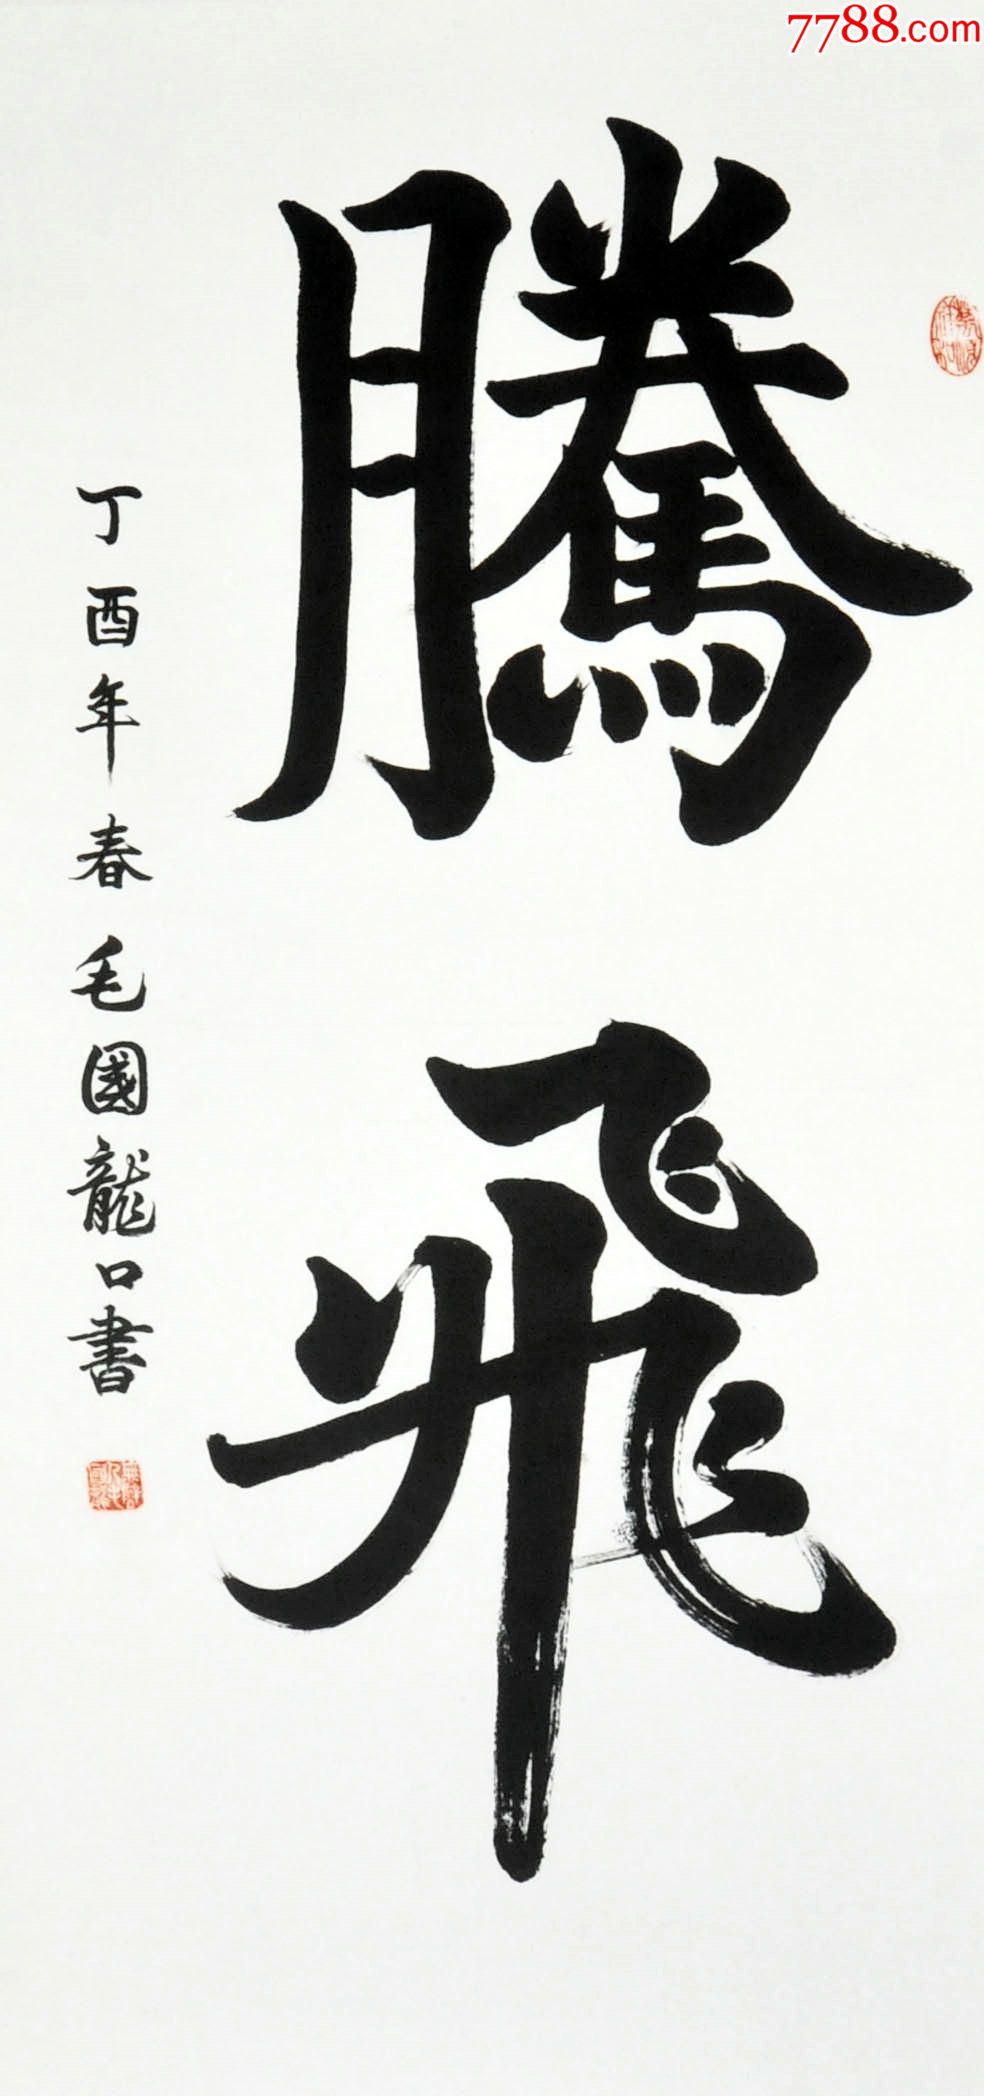 7788.com
騰飛
丁酉年春毛國龍口書